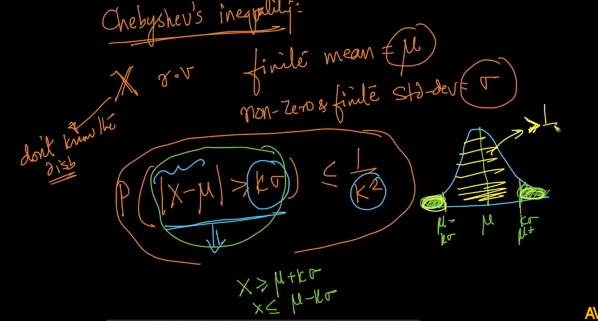 Chebyshev's inequality:
X r.v finite mean = μ
non-zero & finite std-dev = σ
don't know the
dist
P(|X-μ| ≥ kσ) ≤ 1/k²
X ≥ μ+kσ
x ≤ μ-kσ
μ-
kσ
μ
kσ
μ+
AV